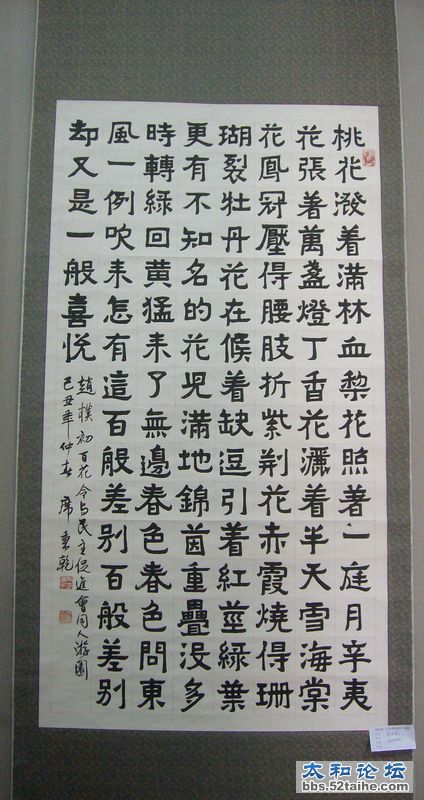 桃花潑着滿林血梨花照著一庭月辛夷
花張着萬盞燈丁香花灑着半天雪海棠
花鳳冠壓得腰肢折紫荆花赤霞燒得珊
瑚裂牡丹花在候着缺逗引着紅莖綠葉
更有不知名的花児滿地錦茵重疊没多
時轉綠回黄猛来了無邊春色春色問東
風一例吹来怎有這百般差别百般差别
却又是一般喜悦
趙樸初百花令与民主促進會同人游園
己丑年仲春 席秉乾
太和论坛
bbs.52taihe.com